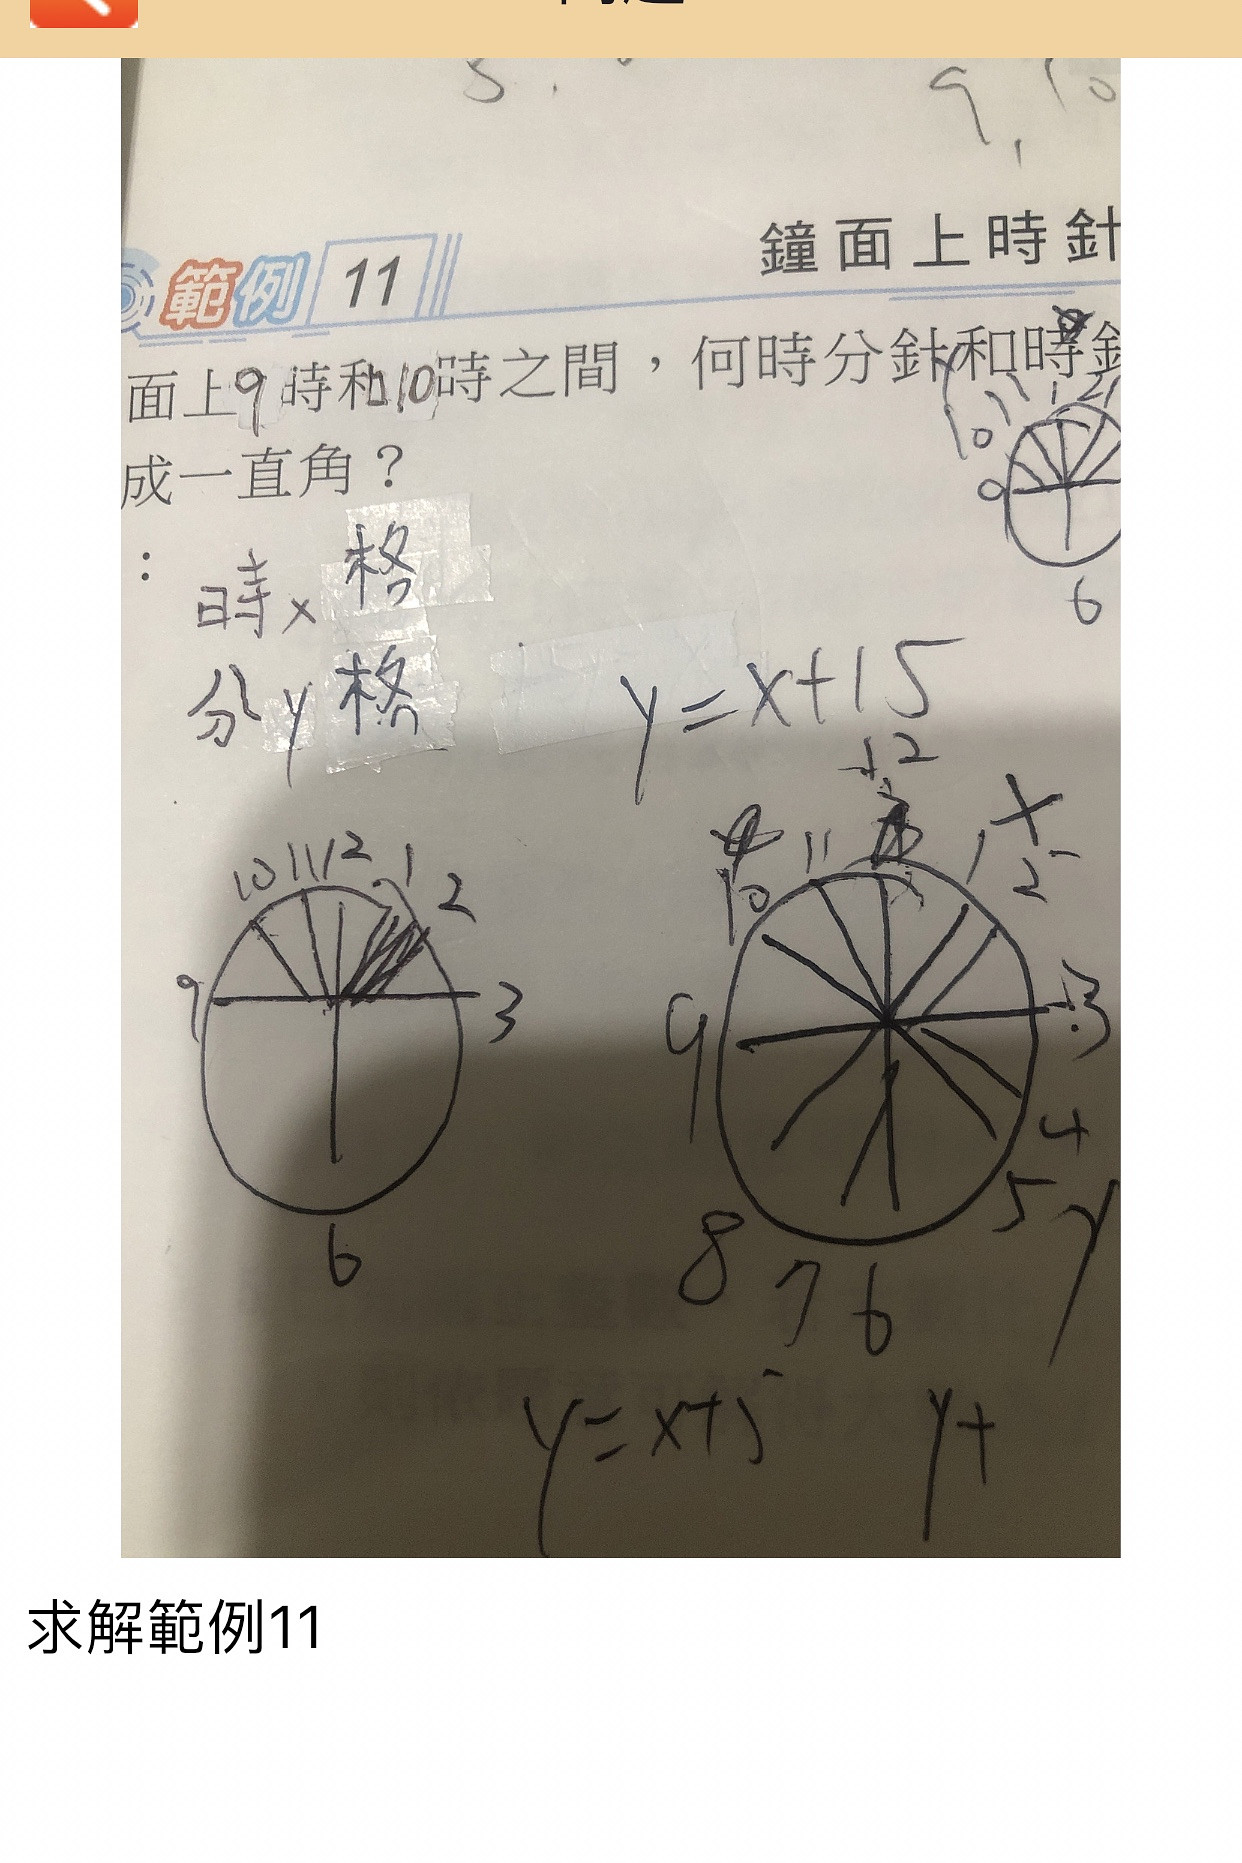 鐘面上時針
範例 11
面上9時和10時之間，何時分針和時針
成一直角？
10 11 12 1
9
6
：
時x格
分y格
y=x+15
10 11 12 1 2
9 3
6
12
10 11 1 x
2
9 3
4
8 7 6 5 y
y=x+5 y+
求解範例11